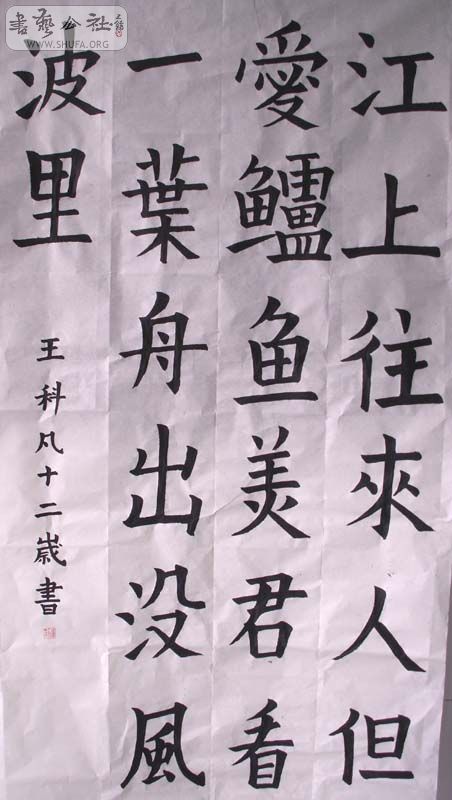 江上往來人但
愛鱸鱼美君看
一葉舟出没風
波里
王科凡十二嵗書
書藝公社
WWW.SHUFA.ORG